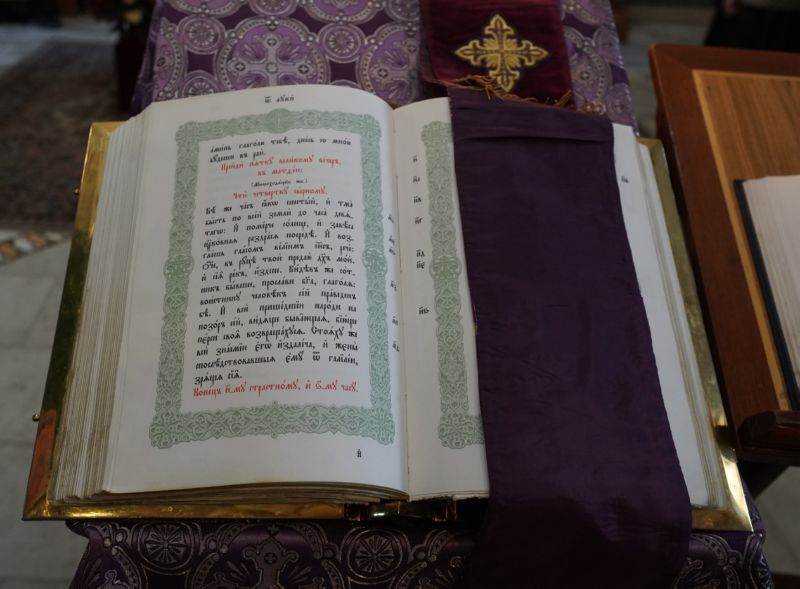 Ѿ лꙋкѝ
а҆ми́нь глаго́лю тебѣ̀, дне́сь со мно́ю
бꙋ́деши въ раѝ.
Прейдѝ пѧткꙋ̀ вели́комꙋ ве́черъ,
въ матѳе́и:
Чтѝ четверткꙋ̀ сы́рномꙋ.
Бѣ́ же ча́съ ꙗ҆́кѡ шесты́й, и҆ тма̀
бы́сть по всѐй землѝ до часа̀ девѧ́-
тагѡ: И҆ поме́рче со́лнце, и҆ завѣ́са
цр҃ко́внаѧ раздра́сѧ посредѣ̀. И҆ воз-
гла́шь гла́сомъ ве́лїимъ і҆и҃съ, речѐ:
Ѻ҆́ч҃е, въ рꙋ́цѣ твоѝ предаю̀ дꙋ́хъ мо́й.
и҆ сїѧ̑ ре́къ, и҆́здше. Ви́дѣвъ же со́т-
никъ бы́вшее, просла́ви бг҃а, глаго́лѧ:
вои́стиннꙋ человѣ́къ се́й првднъ
бѣ̀. И҆ всѝ прише́дшїи наро́ди на
позо́ръ се́й, ви́дѧще быва̑ющаѧ, бїю́ще
пє́рси своѧ̑ возвраща́хꙋсѧ. Стоѧ́хꙋ же
всѝ зна́емїи є҆гѡ̀ и҆здале́ча, и҆ жєны̀
спослѣ́дствовавшыѧ є҆мꙋ̀ ѿ галїле́и,
зрѧ́щѧ сїѧ̑.
Коне́цъ и҃-мꙋ стра́стномꙋ, и҆ ѕ҃-мꙋ часꙋ̀.